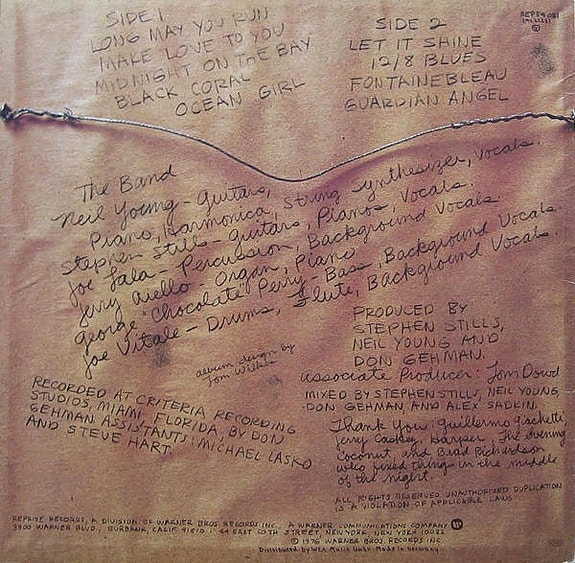 SIDE 1
LONG MAY YOU RUN
MAKE LOVE TO YOU
MIDNIGHT ON THE BAY
BLACK CORAL
OCEAN GIRL
SIDE 2
LET IT SHINE
12/8 BLUES
FONTAINEBLEAU
GUARDIAN ANGEL
The Band
Neil Young - Guitars,
Piano, Harmonica, String Synthesizer, Vocals.
Stephen Stills - Guitars, Pianos, Vocals.
Joe Lala - Percussion, Background Vocals
Jerry Aiello - Organ, Piano
George "Chocolate" Perry - Bass Background Vocals.
Joe Vitale - Drums, Flute, Background Vocals.
album design by
Tom Wilkes
PRODUCED BY
STEPHEN STILLS,
NEIL YOUNG AND
DON GEHMAN.
Associate Producer: Tom Dowd
MIXED BY STEPHEN STILLS, NEIL YOUNG,
DON GEHMAN AND ALEX SADKIN.
RECORDED AT CRITERIA RECORDING
STUDIOS, MIAMI FLORIDA, BY DON
GEHMAN ASSISTANTS: MICHAEL LASKO
AND STEVE HART.
Thank You: Guillermo Giachetti
Jerry Harper, The evening
coconut, and Brad Richardson
who fixed things in the middle
of the night.
ALL RIGHTS RESERVED UNAUTHORIZED DUPLICATION
IS A VIOLATION OF APPLICABLE LAWS.
REPRISE RECORDS, A DIVISION OF WARNER BROS. RECORDS INC., A WARNER COMMUNICATIONS COMPANY
3300 WARNER BLVD., BURBANK, CALIF. 91510 • 44 EAST 50TH STREET, NEW YORK, NEW YORK 10022
© 1976 WARNER BROS. RECORDS INC.
Distributed by WEA Musik Gmbh · Made in Germany